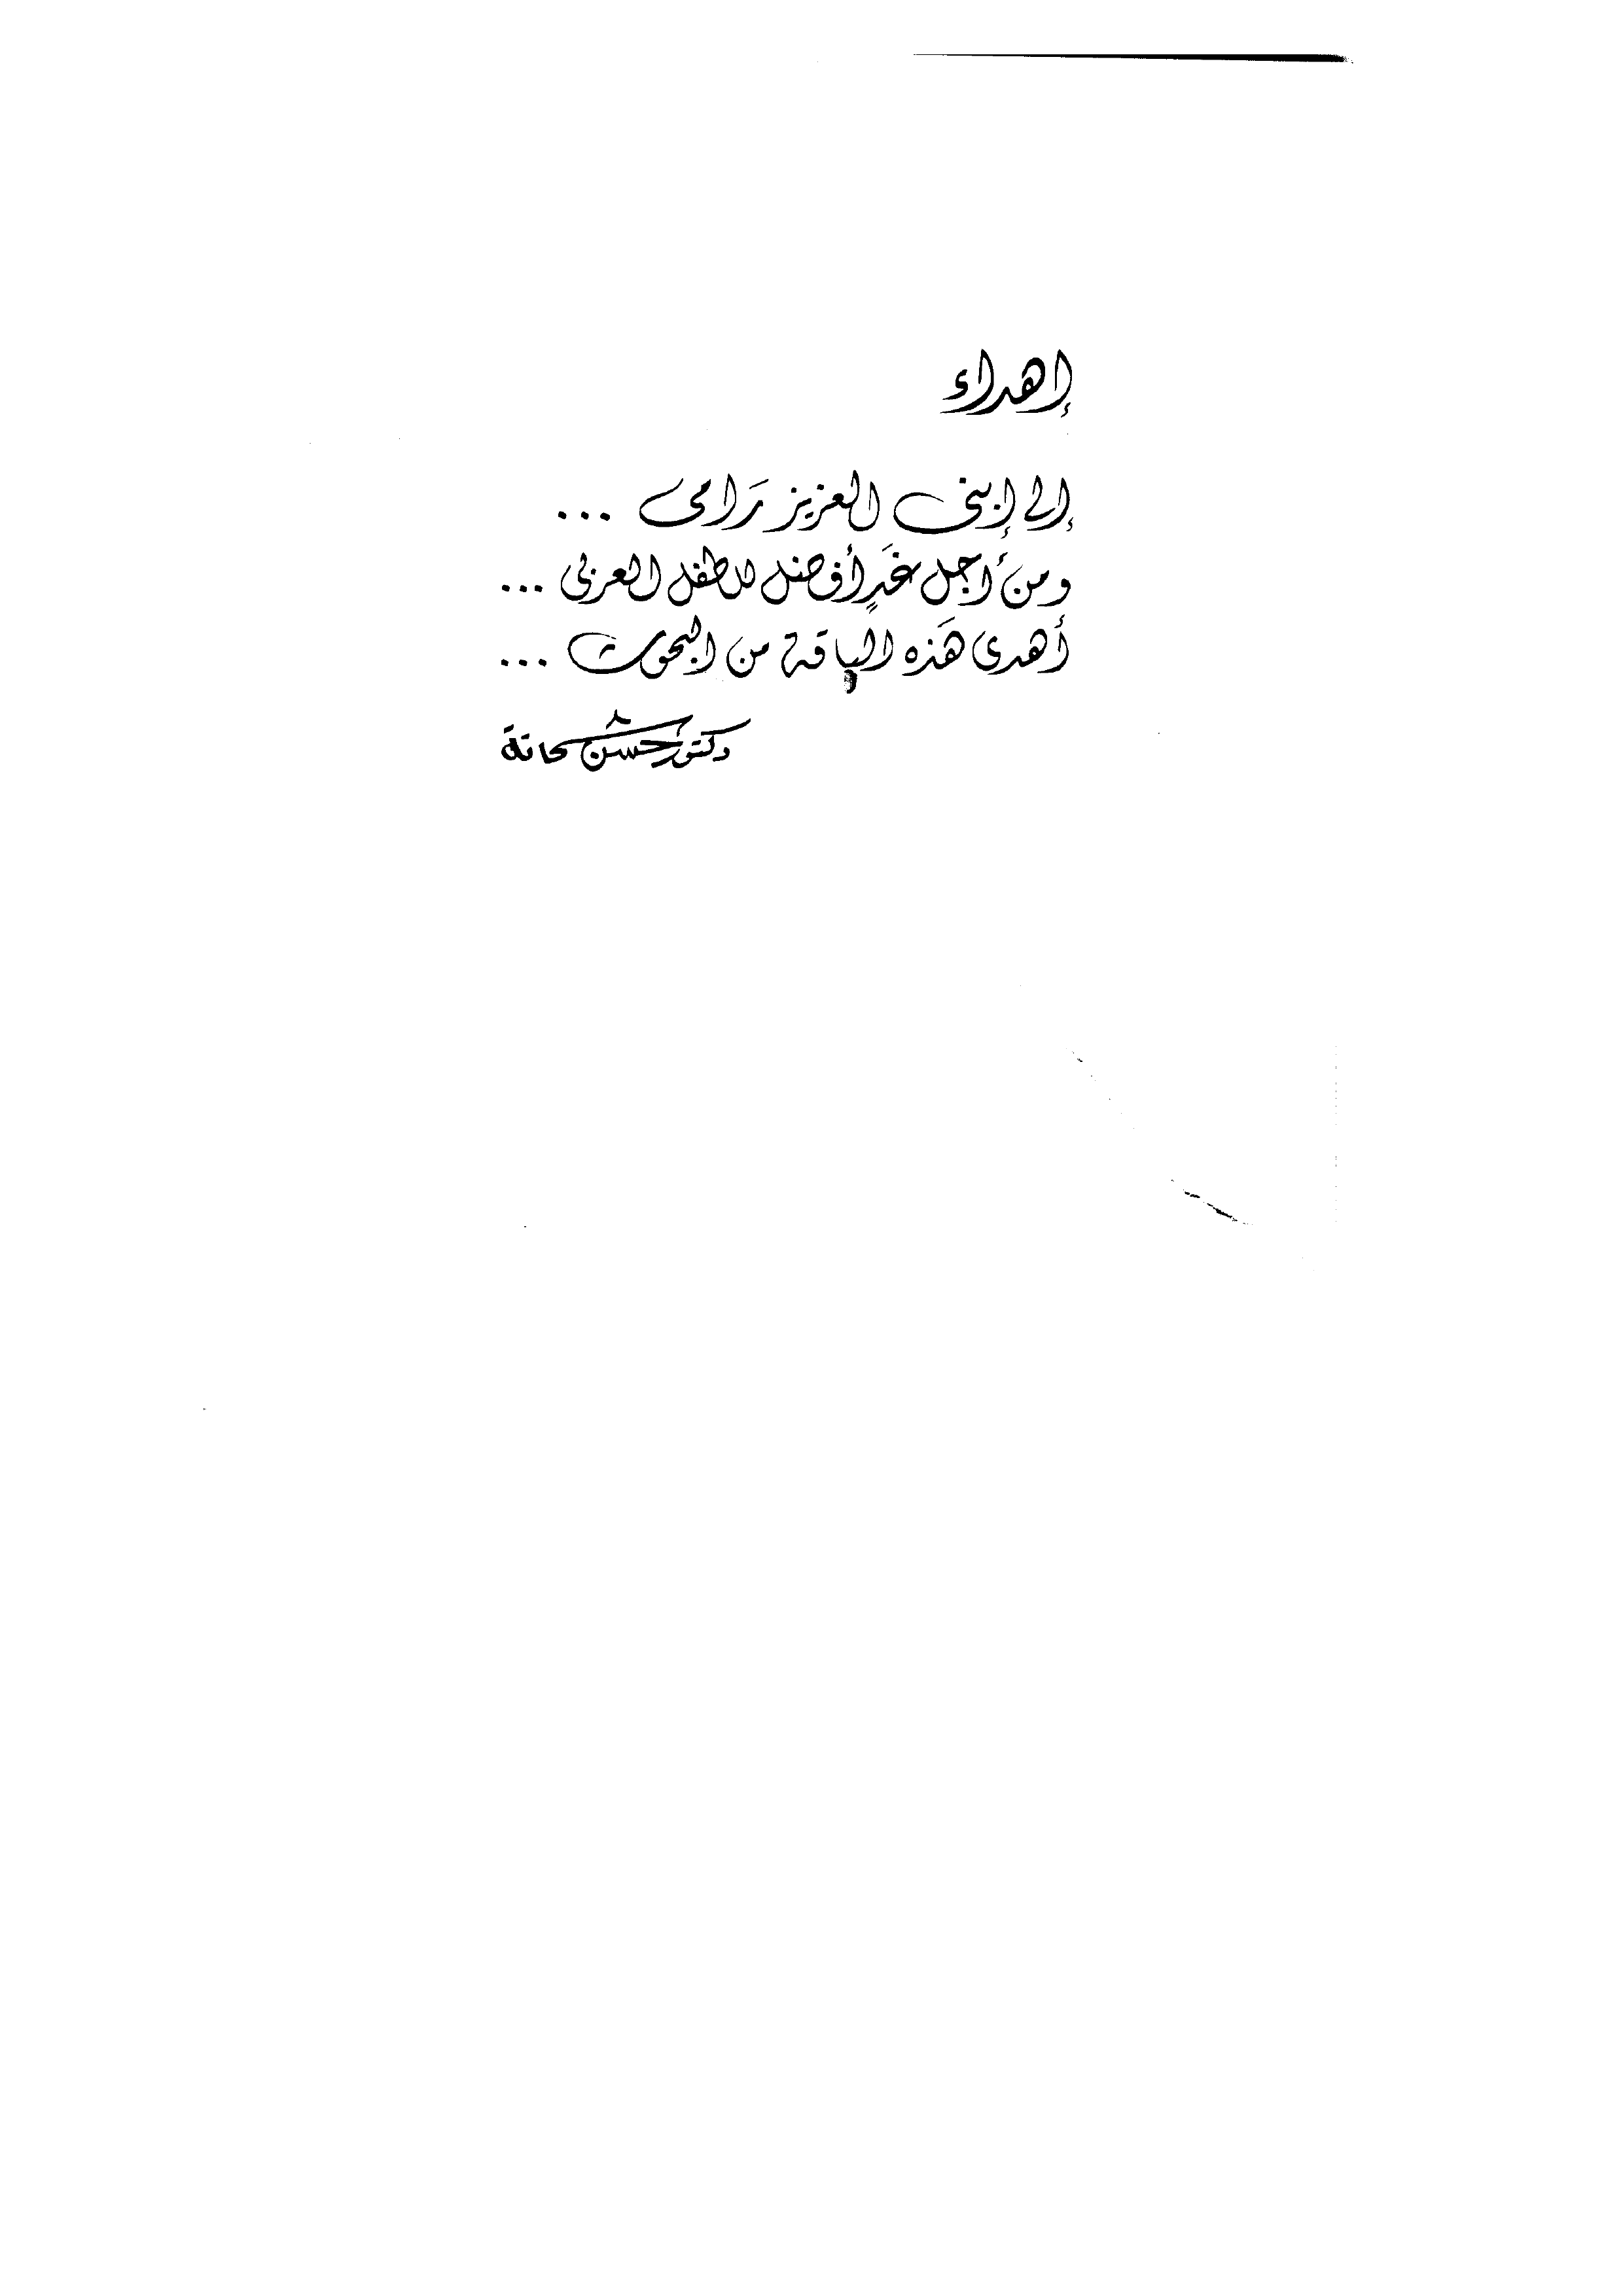 إهداء
إلى إبنى العزيز رَامى ...
ومن أجل غَدٍ أفضل للطفل العربى ...
أهدى هَذه الباقة من البحوث ...
دكتور حسن شحاتة